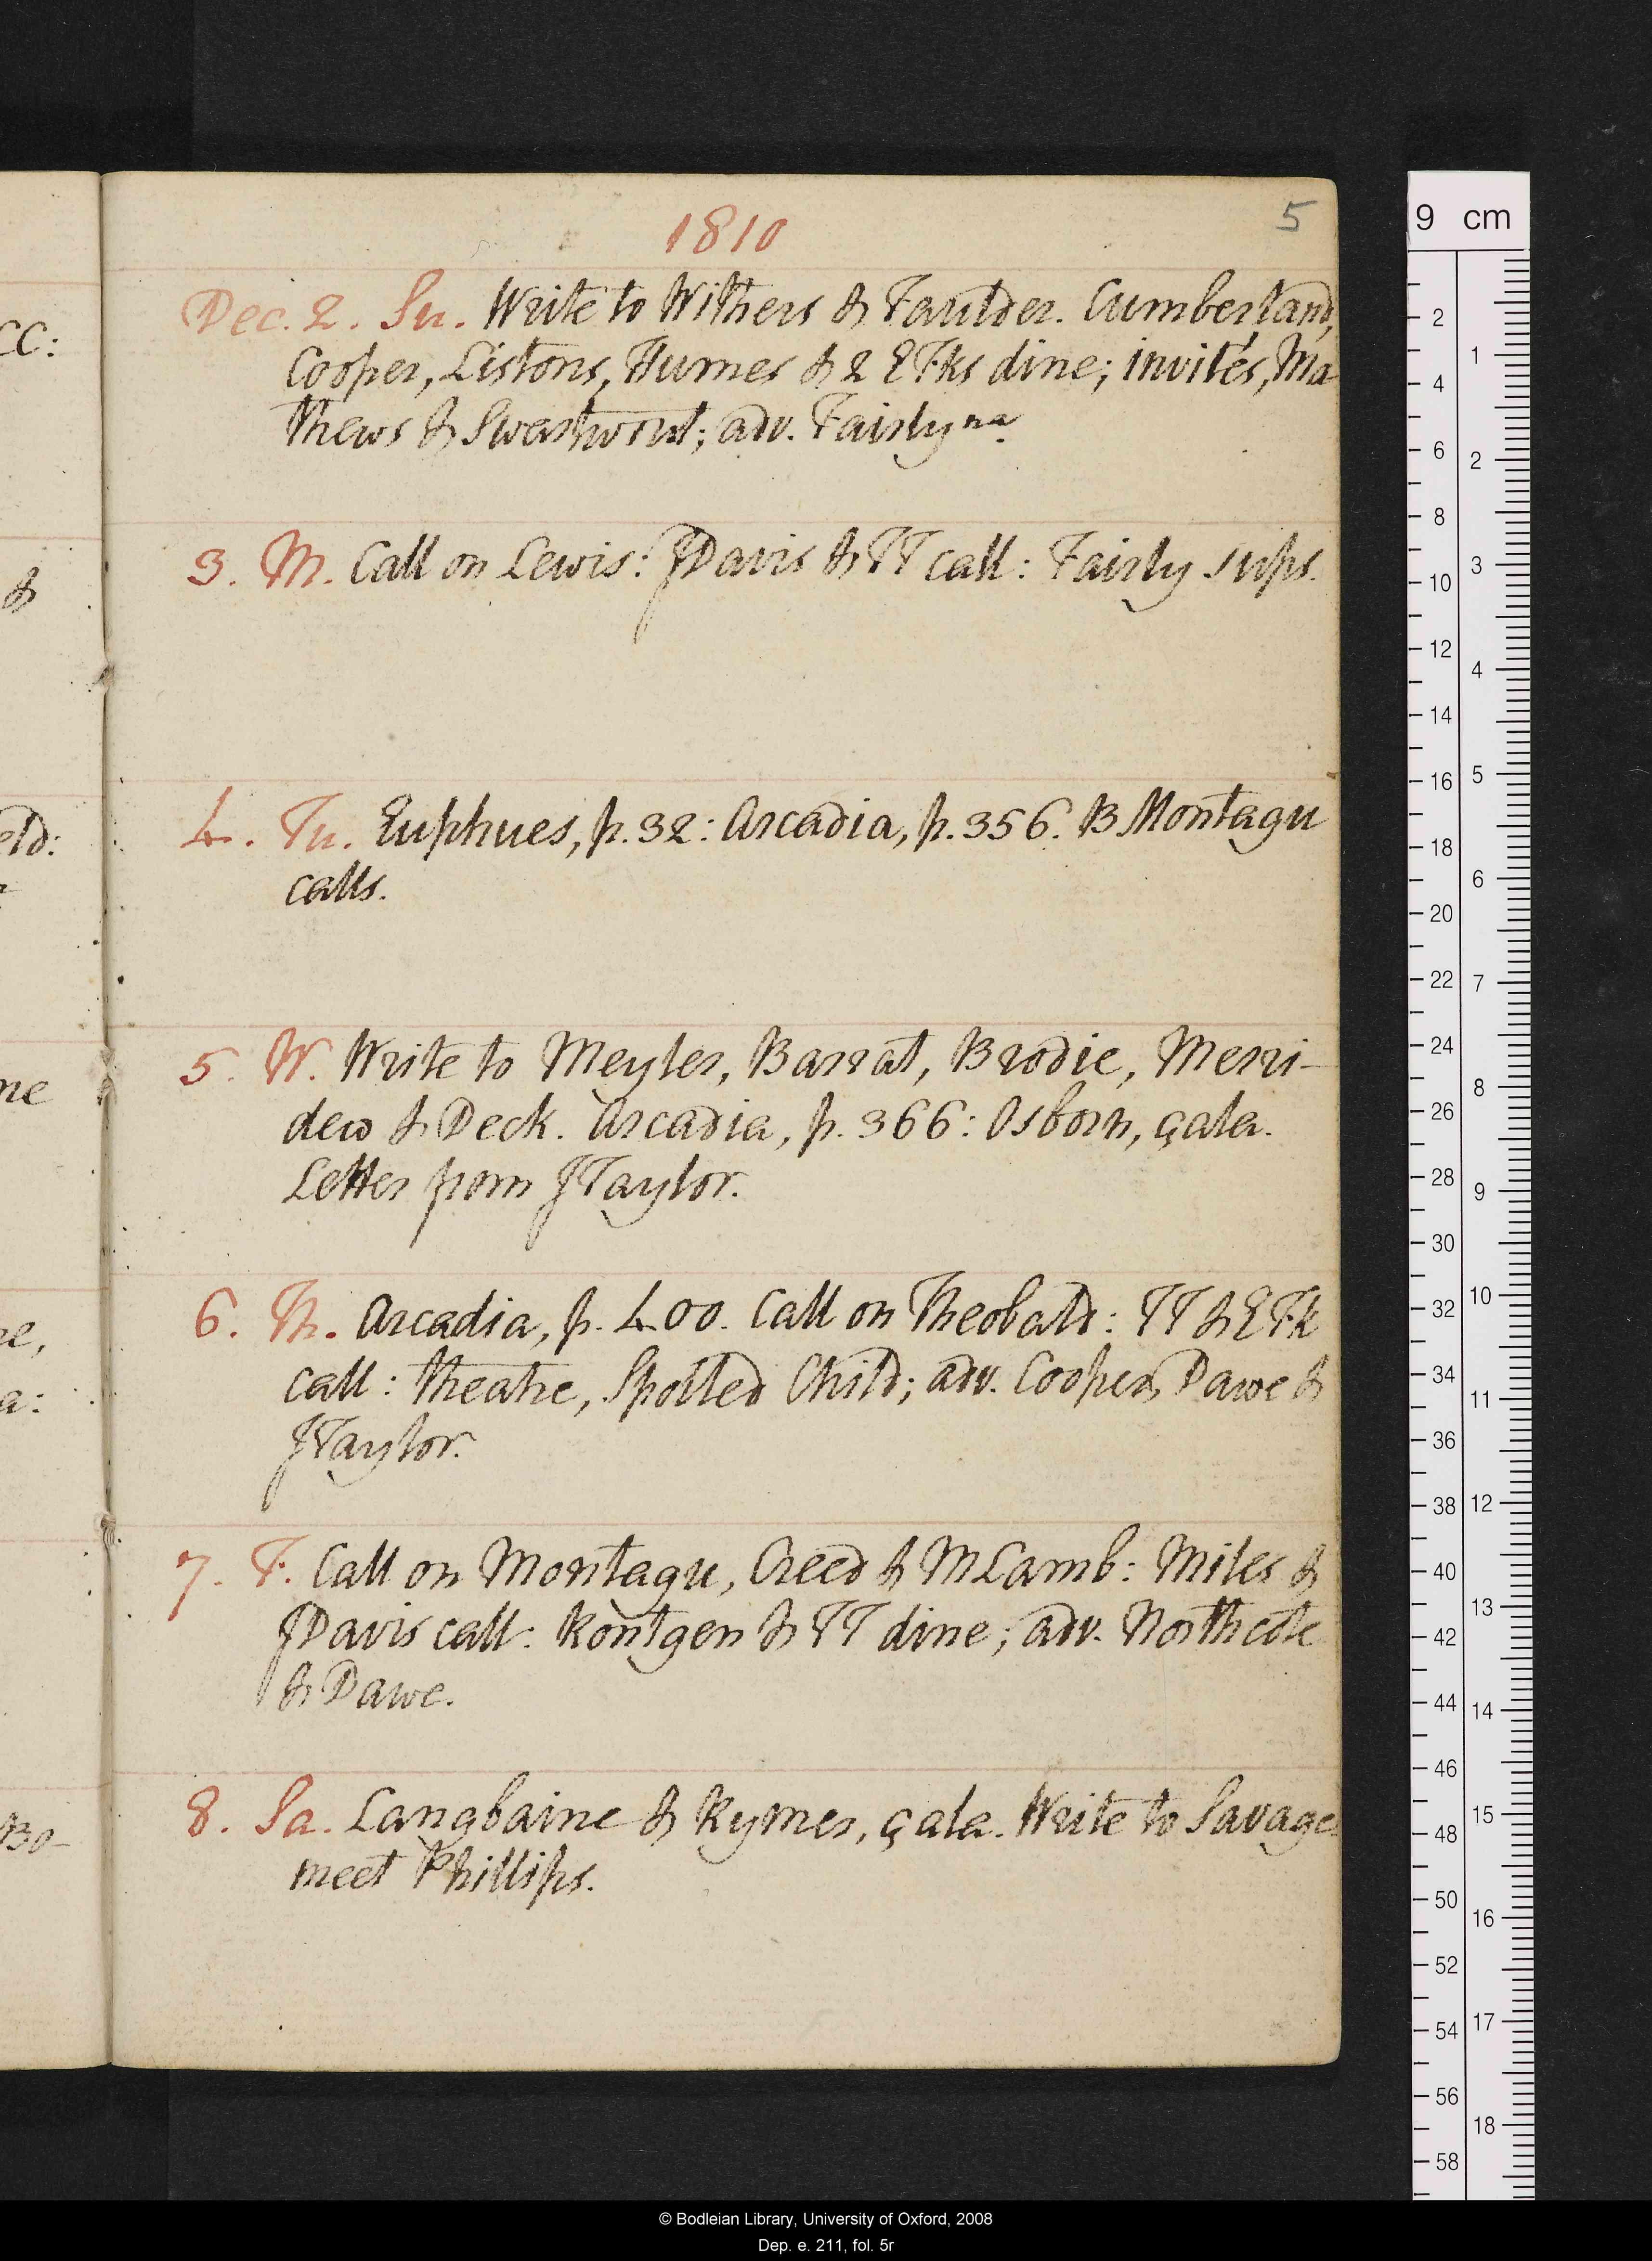 cc:
&
eld:
ne
re,
a:
Bo-
1810
5
Dec. 2. Su. Write to Withers & Faulder. Cumberland,
Cooper, Listons, Humes & 2 EFks dine; invités, Ma
thews & Swartwout; adv. Fairly na
3. M. Call on Lewis: JDavis & TT call: Fairly sups.
4. Tu. Euphues, p. 32: Arcadia, p. 356. B Montagu
calls.
5. W. Write to Meyler, Barrat, Brodie, Merri-
dew & Deck. Arcadia, p. 366: Osborn, çala.
Letter from JTaylor.
6. Th. Arcadia, p. 400. Call on Theobald: TT & EFk
call: theatre, Spoiled Child; adv. Cooper, Dawe &
JTaylor.
7. F. Call on Montagu, Creed & MLamb: Miles &
JDavis call: Rontgen & TT dine; adv. Northcote
& Dawe.
8. Sa. Langbaine & Rymer, çala. Write to Savage
meet Phillips.
9 cm
2
4
6
8
10
12
14
16
18
20
22
24
26
28
30
32
34
36
38
40
42
44
46
48
50
52
54
56
58
1
2
3
4
5
6
7
8
9
10
11
12
13
14
15
16
17
18
© Bodleian Library, University of Oxford, 2008
Dep. e. 211, fol. 5r